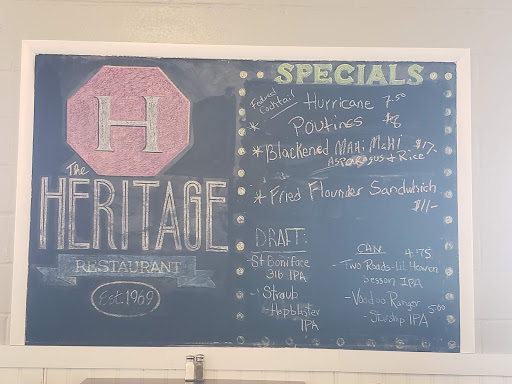 H
The
HERITAGE
RESTAURANT
Est. 1969
SPECIALS
Featured Cocktail
Hurricane 7.50
* Poutines $8
* Blackened Mahi Mahi $17-
Asparagus & Rice
* Fried Flounder Sandwhich
$11/-
DRAFT:
- St Boniface
316 IPA
- Straub
- Hopblister
IPA
CAN 4.75
- Two Roads-Lil Heaven
Session IPA
- Voodoo Ranger 5.00
IPA